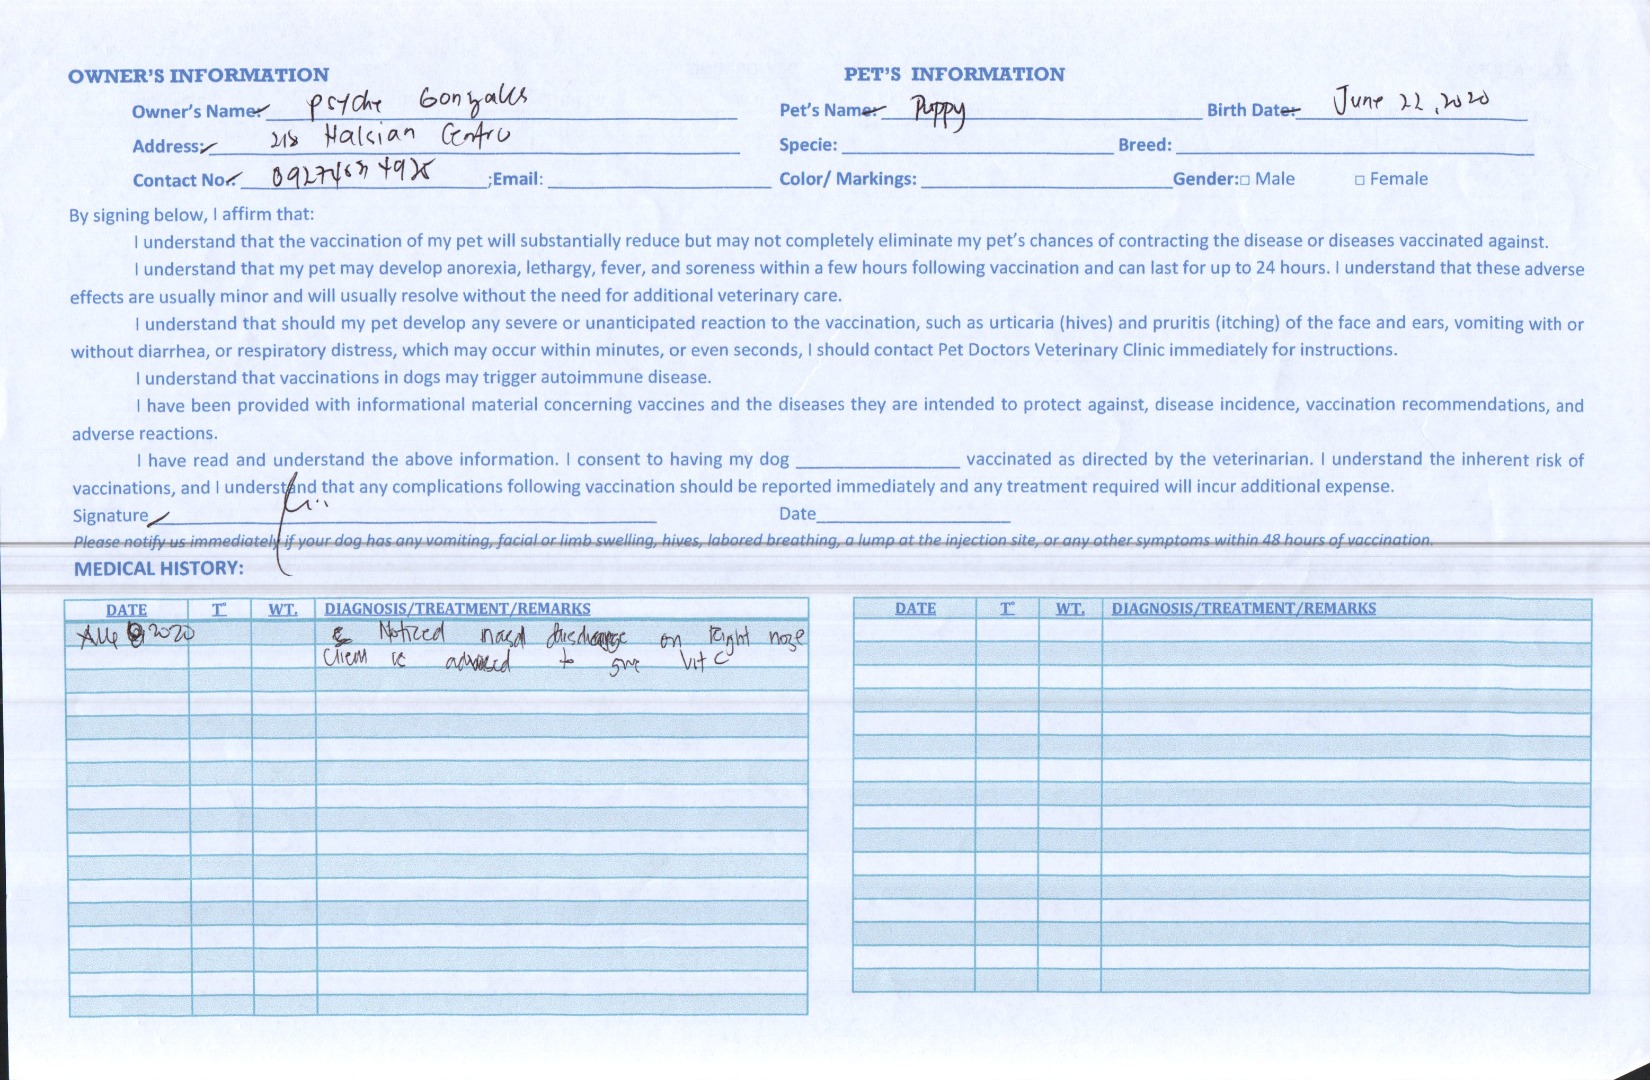 OWNER'S INFORMATION
Owner's Name: Psyche Gonzales
Address: 218 Halcian Centro
Contact No.: ;Email:
PET'S INFORMATION
Pet's Name: Puppy Birth Date: June 22, 2020
Specie: Breed:
Color/ Markings: Gender:□ Male □ Female
By signing below, I affirm that:
I understand that the vaccination of my pet will substantially reduce but may not completely eliminate my pet's chances of contracting the disease or diseases vaccinated against.
I understand that my pet may develop anorexia, lethargy, fever, and soreness within a few hours following vaccination and can last for up to 24 hours. I understand that these adverse
effects are usually minor and will usually resolve without the need for additional veterinary care.
I understand that should my pet develop any severe or unanticipated reaction to the vaccination, such as urticaria (hives) and pruritis (itching) of the face and ears, vomiting with or
without diarrhea, or respiratory distress, which may occur within minutes, or even seconds, I should contact Pet Doctors Veterinary Clinic immediately for instructions.
I understand that vaccinations in dogs may trigger autoimmune disease.
I have been provided with informational material concerning vaccines and the diseases they are intended to protect against, disease incidence, vaccination recommendations, and
adverse reactions.
I have read and understand the above information. I consent to having my dog ________ vaccinated as directed by the veterinarian. I understand the inherent risk of
vaccinations, and I understand that any complications following vaccination should be reported immediately and any treatment required will incur additional expense.
Signature Date
Please notify us immediately if your dog has any vomiting, facial or limb swelling, hives, labored breathing, a lump at the injection site, or any other symptoms within 48 hours of vaccination.
MEDICAL HISTORY:
DATE T° WT. DIAGNOSIS/TREATMENT/REMARKS
2020 Noticed nasal discharge on right nose
Client is advised to give Vit C
DATE T° WT. DIAGNOSIS/TREATMENT/REMARKS